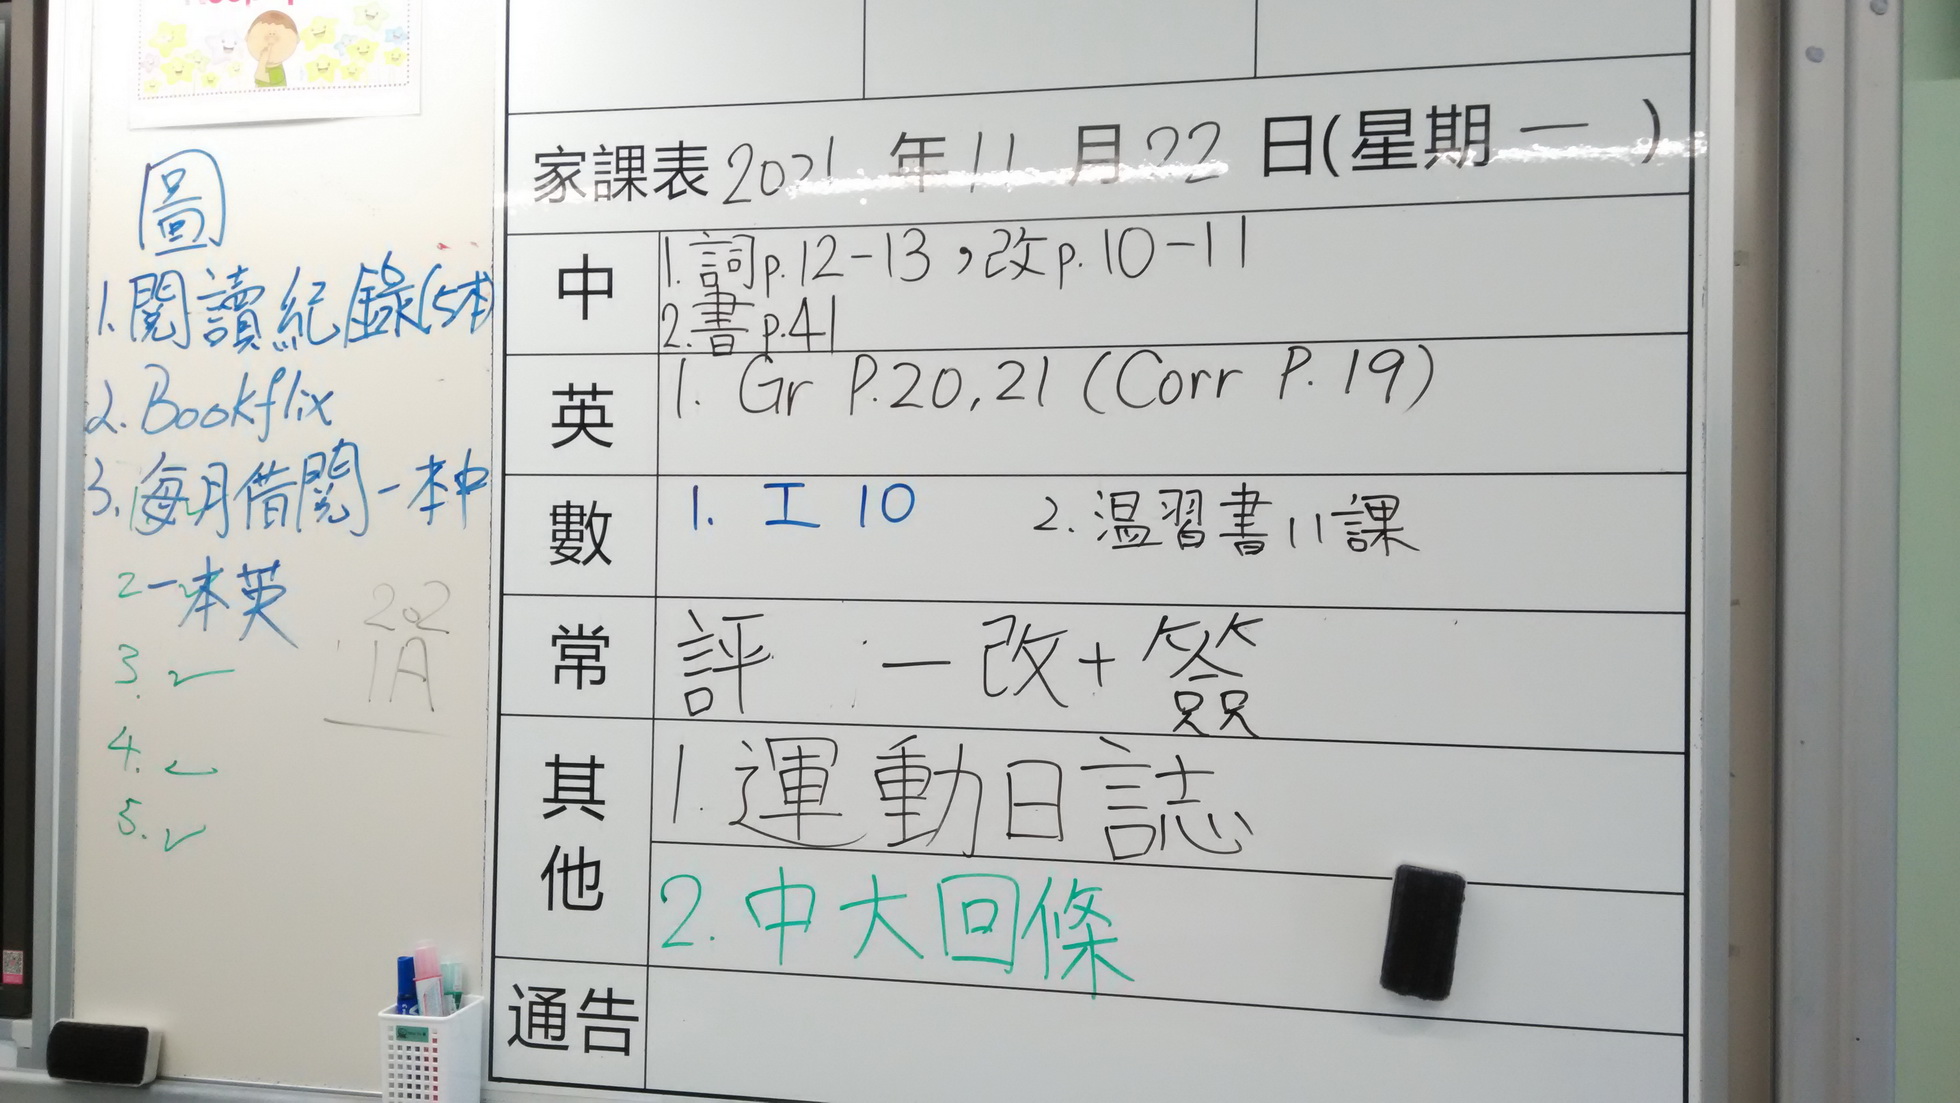 圖
1. 閱讀紀錄(5本)
2. Bookflix
3. 每月借閱一本中
一本英
2
3. ✓
4. ✓
5. ✓
202
1A
家課表 2021 年 11 月 22 日(星期 一 )
中
1. 詞p.12-13，改p.10-11
2. 書p.41
英
1. Gr P.20,21 (Corr P.19)
數
1. 工 10 2. 温習書11課
常
評 一改+簽
其他
1. 運動日誌
2. 中大回條
通告